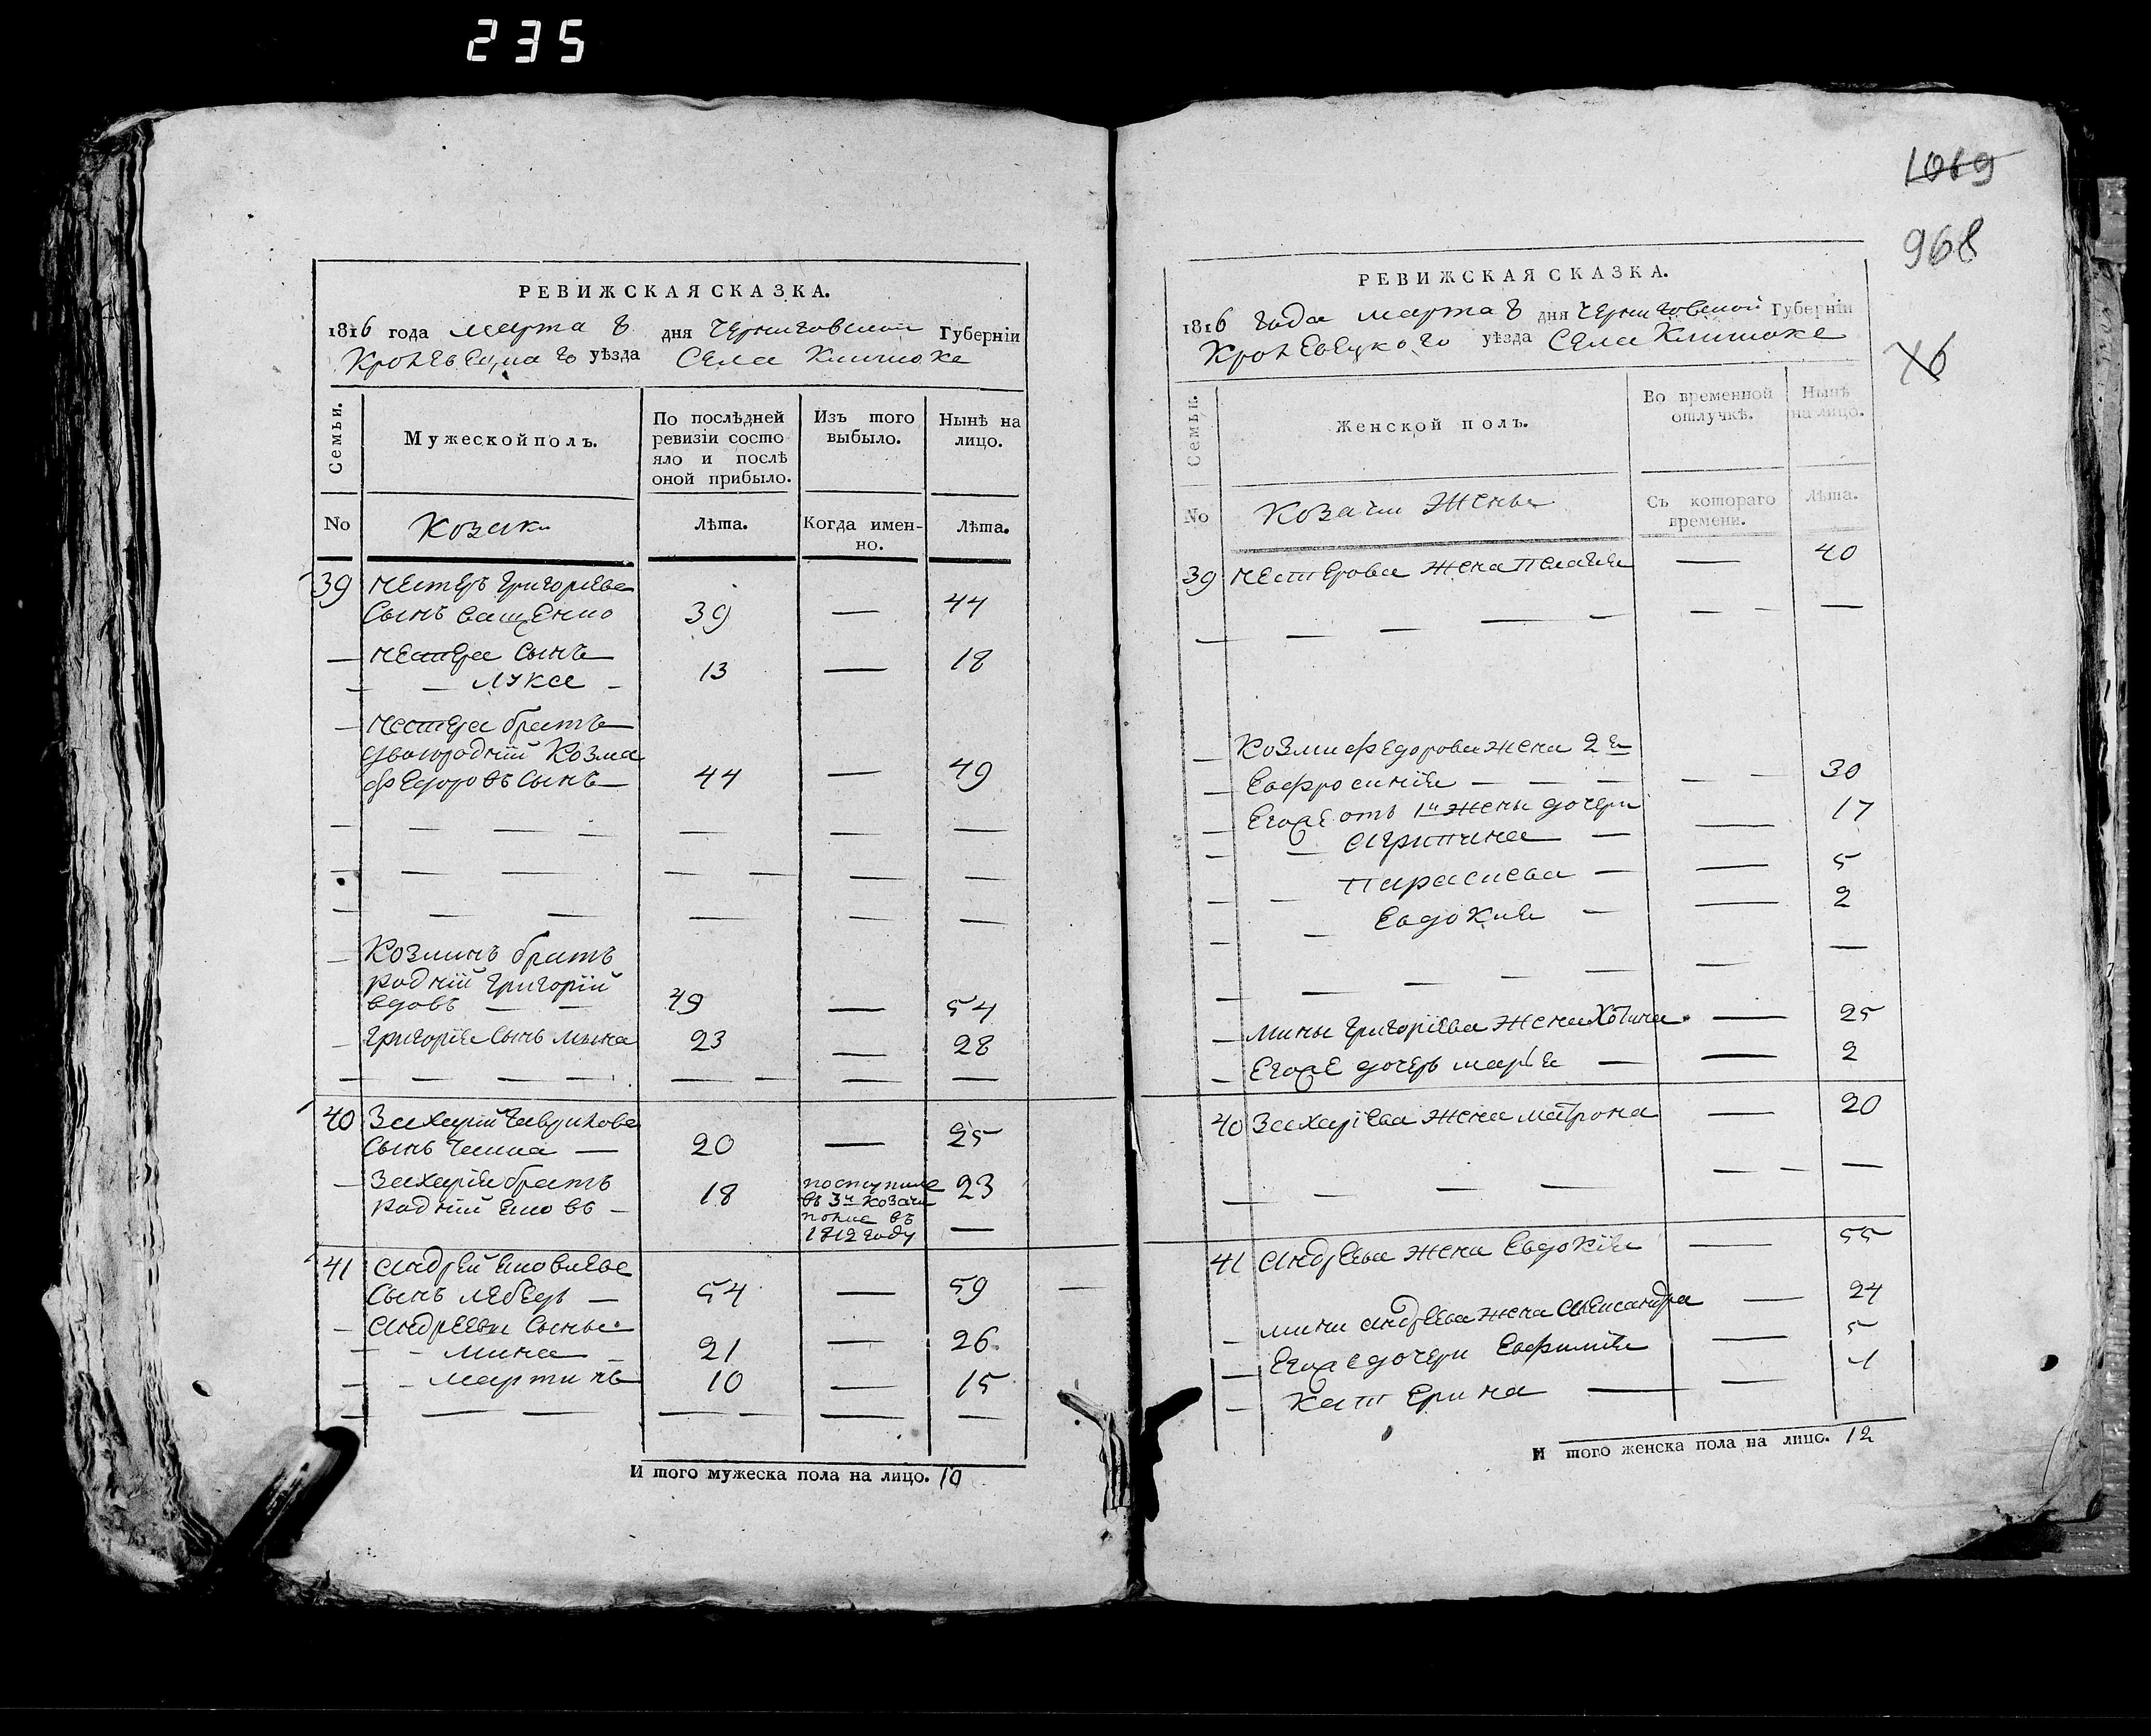 235
РЕВИЖСКАЯ СКАЗКА.
1816 года марта 8 дня Черниговской Губернїи
Кролевецкаго уѣзда Села Клишокъ
Семьи.
Мужеской полъ.
По послѣдней ревизїи состояло и послѣ оной прибыло.
Изъ того выбыло.
Нынѣ на лицо.
No
Козаки
Лѣта.
Когда имен-
но.
Лѣта.
39 Нестеръ Григорьевъ
Сынъ Ващенко 39 — 44
— Нестера Сынъ
— — Лука — 13 — 18
— Нестера братъ
двоюродній Козма
Федоровъ Сынъ — 44 — 49
— Козминъ братъ
родній Григорій
вдовъ — — 49 — 54
— Григорія Сынъ Мина 23 — 28
40 Захарій Гавриловъ
Сынъ — 20 — 25
— Захарія братъ
родній Яковъ — 18 поступилъ
въ 3й Козачій
полкъ въ
1812 году 23
—
41 Андрей Яковлевъ
Сынъ Лебедь — 54 — 59
— Андреевы Сыны
— - Мина — 21 — 26
— - Мартинъ 10 — 15
И того мужеска пола на лицо. 10
1019
968
76
РЕВИЖСКАЯ СКАЗКА.
1816 года марта 8 дня Черниговской Губернїи
Кролевецкого уѣзда Села Клишокъ
Семьи.
Женской полъ.
Во временной отлучкѣ.
Нынѣ на лицо.
No
Козачьи Жены
Съ котораго времени.
Лѣта.
39 Нестерова жена Пелагия — 40
— Козмы Федорова жена 2я
— Евфросинія — — — 30
— Егоже отъ 1й жены дочери
— — Агрипина — — 17
— — Параскева — — 5
— — Евдокия — — 2
— Мины Григоріева жена Хотина — 25
— Егоже дочерь Марія — — 2
40 Захаріева жена Матрона — 20
41 Андреева жена Евдокія — 55
— Мины Андреева жена Александра — 24
— Егоже дочери Евфимія — 5
— Катерина — — 1
И того женска пола на лицо. 12